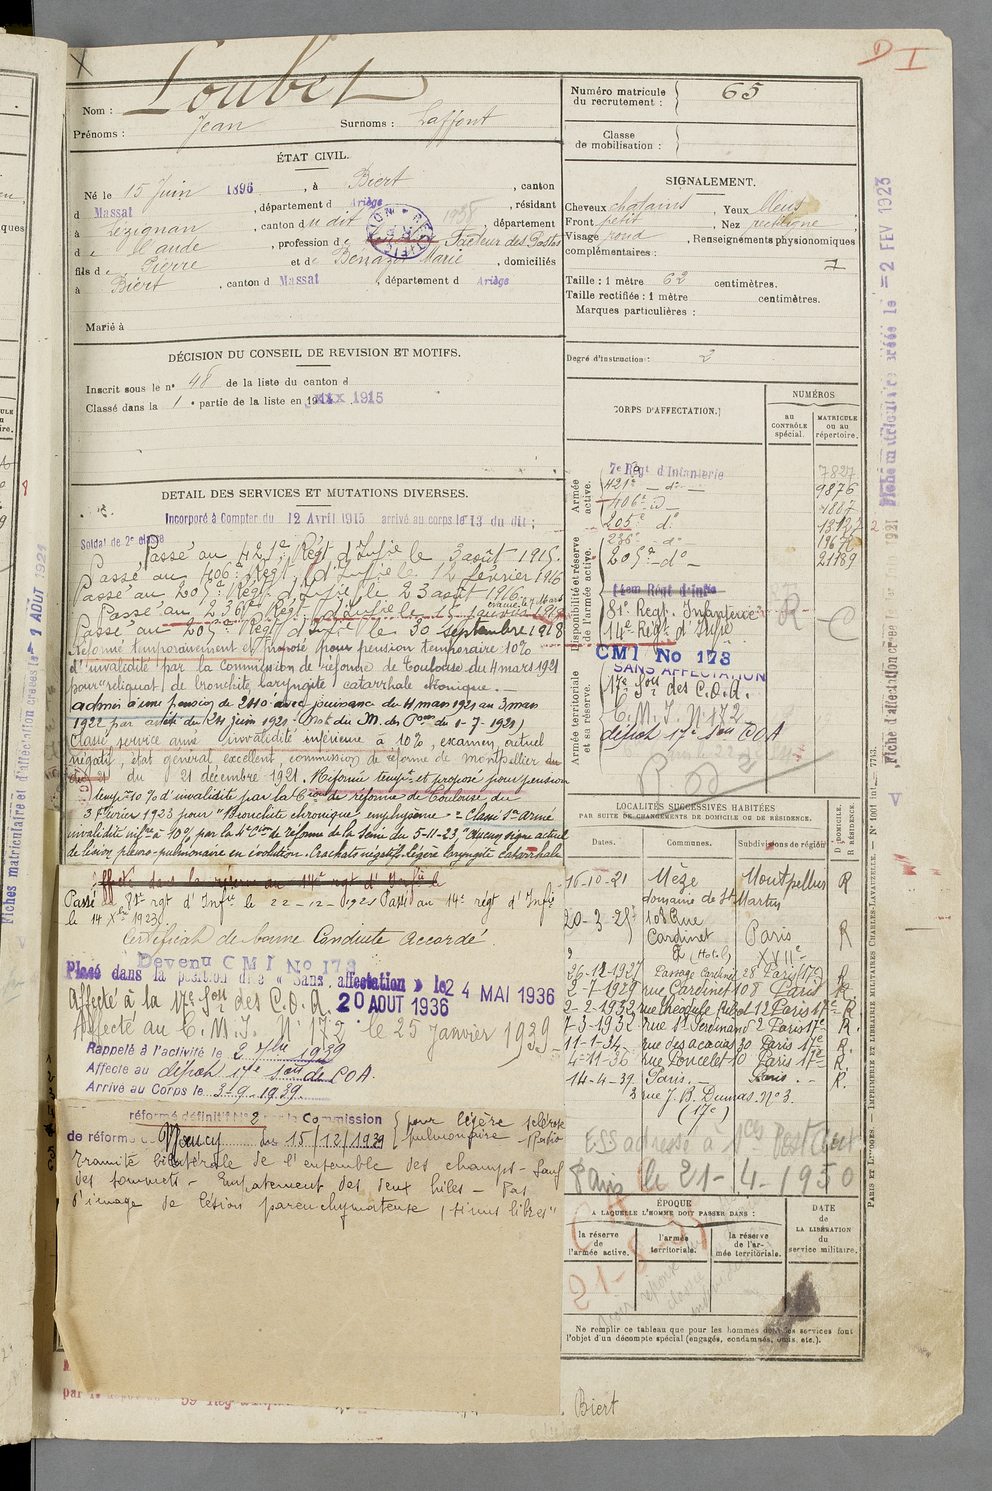 D I
Loubet
Nom :
Prénoms : Jean Surnoms : Laffont
Numéro matricule du recrutement : 65
Classe de mobilisation :
ÉTAT CIVIL.
Né le 15 Juin 1896, à Biert, canton
d Massat, département d Ariège, résidant
à Lézignan, canton du dit 1938, département
d e l'Aude, profession de Facteur des Postes
fils de Pierre et de Benazet Marie, domiciliés
à Biert, canton d Massat, département d Ariège
Marié à
SIGNALEMENT.
Cheveux chatains, Yeux bleus
Front petit, Nez rectiligne
Visage rond, Renseignements physionomiques
complémentaires :
Taille : 1 mètre 62 centimètres.
Taille rectifiée : 1 mètre centimètres.
Marques particulières :
Degré d'instruction : 2
DÉCISION DU CONSEIL DE REVISION ET MOTIFS.
Inscrit sous le n° 48 de la liste du canton d
Classé dans la 1e partie de la liste en 1915
DETAIL DES SERVICES ET MUTATIONS DIVERSES.
Incorporé à Compter du 12 Avril 1915 arrivé au corps le 13 du dit ;
Soldat de 2e classe
Passé au 421e Régt d'Infie le 3 août 1915.
Passé au 406e Régt d'Infie le 12 février 1916
Passé au 205e Régt d'Infie le 23 août 1916.
Passé au 236e Régt d'Infie le 15
Passé au 205e Régt d'Infie le 30 septembre 1918
Réformé temporairement et proposé pour pension temporaire 10%
d'invalidité par la commission de réforme de Toulouse du 4 mars 1921
pour "reliquat de bronchite, laryngite catarrhale chronique.
admis à une pension de 240 avec jouissance du 4 mars 1921 au 3 mars
1922 par arrêté du 24 juin 1921. (Not. du M. des Pons du 1-7-1921)
Classé service armé invalidité inférieure à 10%, examen actuel
négatif, état général excellent, commission de réforme de Montpellier du
du 21 décembre 1921. Réformé tempre et proposé pour pension
tempre 10% d'invalidité par la Cion de réforme de Toulouse du
3 Février 1923 pour "Bronchite chronique emphysème" Classé Sce armé
invalidité infre à 10% par la Con de réforme de la Seine du 5-11-23, "Aucun signe actuel
de lésion pleuro-pulmonaire en évolution. Crachats négatifs. Légère laryngite catarrhale
Affecté dans la réserve au 14e rgt d'Infie
Passé au 81e rgt d'Infie le 22-12-1921 Passé au 14e régt d'Infie
le 14 Xbre 1923.
Certificat de bonne Conduite Accordé.
Devenu CMI No 173
Placé dans la position dite « Sans affectation » le 24 MAI 1936
Affecté à la 17e Son des C.O.A. 20 AOUT 1936
Affecté au C.M.I. N° 172 le 25 Janvier 1939
Rappelé à l'activité le 2 7bre 1939
Affecté au dépôt 17e Son de COA.
Arrivé au Corps le 3-9-1939.
réformé définitif N° 2 Commission
de réforme de Nancy du 15/12/1939 pour légère sclérose
pulmonaire
bilatérale de l'ensemble des champs - Sauf
des sommets - Empatement des deux hiles - Pas
d'image de lésion parenchymateuse, sinus libres"
CORPS D'AFFECTATION.
NUMÉROS
au CONTRÔLE spécial.
MATRICULE ou au répertoire.
Armée active.
7e Régt d'Infanterie 7827
421e - do - 9876
406e - do 1807
205e do 13127
Disponibilité et réserve de l'armée active.
236e - do -
205e - do - 21189
14em Régt d'Infie
81e Régt. Infanterie R
14e Régt d'Infie C
CMI No 173
SANS AFFECTATION
Armée territoriale et sa réserve.
17e Son des C.O.A.
C.M.I. N° 172
dépôt 17e Son COA
LOCALITÉS SUCCESSIVES HABITÉES
PAR SUITE DE CHANGEMENTS DE DOMICILE OU DE RÉSIDENCE.
Dates. Communes. Subdivisions de région
D. DOMICILE. R. RÉSIDENCE.
16-10-21 Mèze Montpellier R
domaine de St Martin
20-3-25 108 Rue
Cardinet Paris R
(Hotel) XVIIe
26-12-1927 Passage Cardinet 28 Paris (17e) R
2-7-1929 rue Cardinet 108 Paris R.
2-2-1932 rue Théodule Ribot 12 Paris 17e R
7-3-1932 rue St Ferdinand 2 Paris 17e R.
11-1-34 rue des acacias 30 Paris 17e R.
4-11-36 rue Poncelet 10 Paris 17e R.
14-4-39 Paris. - Paris. - R.
3 rue J.B. Dumas. N° 3.
(17e)
ESS adressé à
Paris le 21-4-1950
ÉPOQUE
A LAQUELLE L'HOMME DOIT PASSER DANS :
la réserve de l'armée active.
l'armée territoriale.
la réserve de l'armée territoriale.
DATE de LA LIBÉRATION du service militaire.
Ne remplir ce tableau que pour les hommes dont les services font
l'objet d'un décompte spécial (engagés, condamnés, omis, etc.).
Biert
PARIS ET LIMOGES. — IMPRIMERIE ET LIBRAIRIE MILITAIRES CHARLES-LAVAUZELLE.
Fiche matriculaire créée le 2 FEV 1923
Fiche d'affectation créée le 1921
Fiches matriculaire et d'affectation créées le 1 AOUT 1921